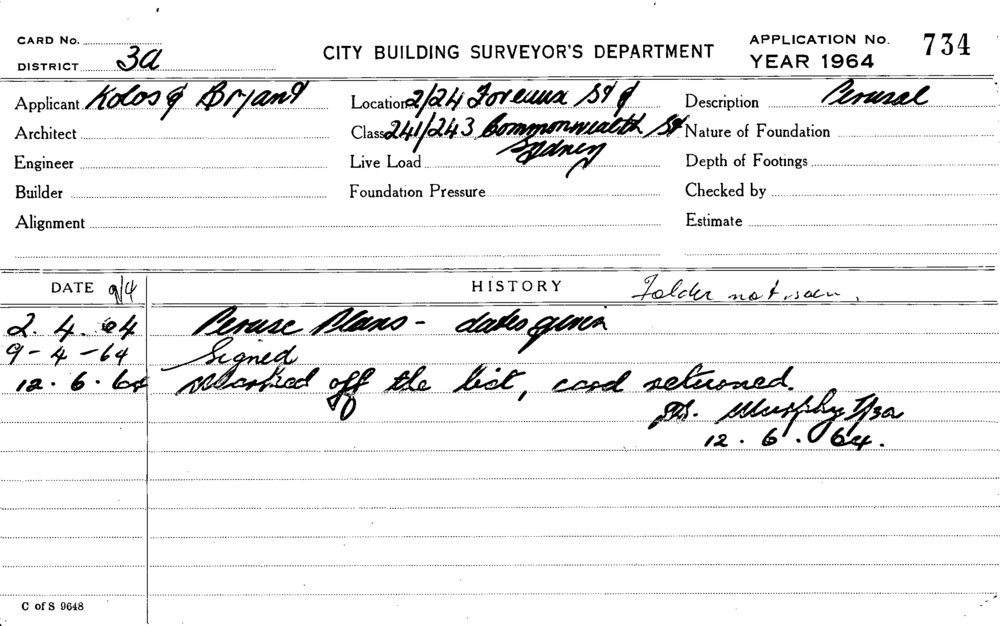 CARD No.
DISTRICT 3a
CITY BUILDING SURVEYOR'S DEPARTMENT
APPLICATION No. 734
YEAR 1964
Applicant Kolos & Bryant
Location 2/24 Foveaux St &
Description Perusal
Architect
Class 241/243 Commonwealth St
Nature of Foundation
Engineer
Live Load Sydney
Depth of Footings
Builder
Foundation Pressure
Checked by
Alignment
Estimate
DATE 9/4
HISTORY
Folder not seen.
2.4.64 Peruse Plans - dates given
9-4-64 Signed
12.6.64 Marked off the list, card returned.
Murphy
12.6.64.
C of S 9648